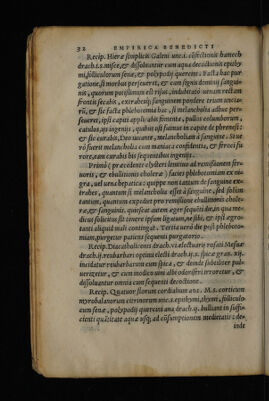 32 EMPIRICA BENEDICTI
Recip. Hieræ simplicis Galeni unc.s. cõfectionis hamech
drach.i.s. misce, & dissolvantur cum aqua decoctionis epithy
mi, folliculorum senæ, & polypodij quercini. Facta hac pur
gatione, si morbus perseveret, & cum signis dominij sangui-
nis, quorum potissimum est risus, incidatur venam rectam
frontis secabis, extrahesq; sanguinem pondere trium uncia-
rũ, & sic facta phlebotomia hac, si melancholia adhuc per-
severet, ipsi capiti applicabis fomenta, pullos columborum,
catulos, &
& sic curabis, Deo juvante, melancholiam à sanguine. Si ve-
rò fuerit melancholia cum mania & confidentia, & ferocitate
rore, eam curabis his sequentibus ingenijs.
Primò (præcedente clystere lenitivo ad remissionem fer-
uoris, & ebullitionis choleræ) facies phlebotomiam ex ni-
gra, vel vena hepatica: quippe non tantum de sanguine ex
trahes, quantum si melancholia esset à sanguine, sed solum
tantum, quantum expedit pro remissione ebullitionis chole-
ræ, & sanguinis, quipsæ autem æger sequẽti die, in qua me-
dicus solicitus sit tenere ipsum ligatum, ne sibi, & ipsi ægro-
tanti aliquid mali contingat. Tertia verò die post phleboto-
miam, purgetur patiens sequenti purgatorio.
Recip. Diacatholiconis drach.vi. electuarij rosati Mesuæ
drach.ij.s. reubarbari optimi electi drach.ij.s. spicæ gra. xij.
incidatur reubarbarum cum spica, & deinde subtiliter pul-
verizetur, & cum modico vini albi odoriferi irroretur, &
dissolvantur omnia cum sequenti decoctione.
Recip. Quatuor florum cordialium ana. M.s. corticum
myrobalanorum citrinorum unc.s. epithymi, thymi, follicu-
cum senæ, polypodij quercini ana drach.ij. bulliant in suffi-
cienti quãtitate aquæ usq; ad cõsumptionem medietatis: de-
inde